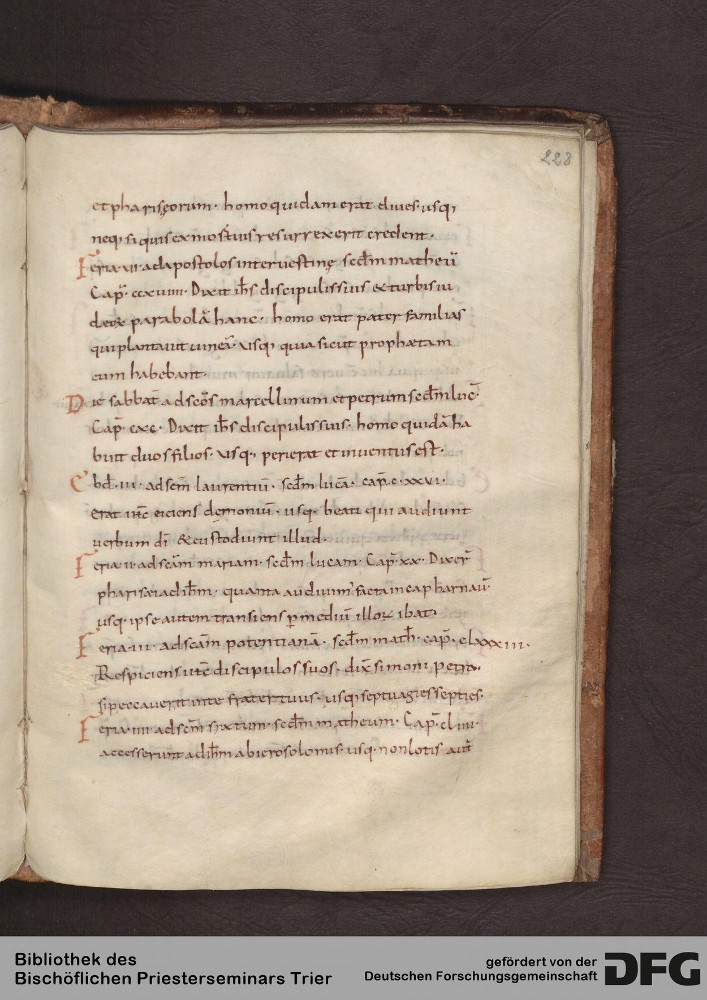 228
et phariseorum· homo quidam erat diues· usq;
neq; si quis ex mortuis resurrexerit credent·
Feria vi· ad apostolos in teruestine secdm matheū
Cap̄· ccxviiii· Dixit ihs discipulis suis & turbis iu
deoꝝ parabolā hanc· homo erat pater familias
qui plantauit uineā· usq; quia sicut prophetam
eum habebant·
Die sabbat̄ ad scōs marcellinum et petrum secdm luc̄·
Cap̄· cxc· Dixit ihs discipulis suis· homo quidā ha
buit duos filios· usq; perierat et inuentus est·
Ebd̄· iii· ad scm̄ laurentiū· secdm lucā· cap̄· c·xxvi·
erat ihc̄ eiciens demoniū· usq; beati qui audiunt
uerbum dī & custodiunt illud·
Feria ii· ad scām mariam· secdm lucam· Cap̄· xx· Dixer̄
pharisei ad ihm̄· quanta audiuim' facta in capharnaū·
usq; ipse autem transiens p̄ mediū illoꝝ ibat·
Feria iii· ad scām potentianā· secdm math̄· cap̄· clxxxiii·
Respiciens ihc̄ discipulos suos· dix̄ simoni petro·
si peccauerit in te frater tuus· usq; septuagies septies·
Feria iiii· ad scm̄ sixtum· secdm matheum· Cap̄· cliiii·
accesserunt ad ihm̄ ab ierosolomis· usq; non lotis aut̄
Bibliothek des
Bischöflichen Priesterseminars Trier
gefördert von der
Deutschen Forschungsgemeinschaft
DFG